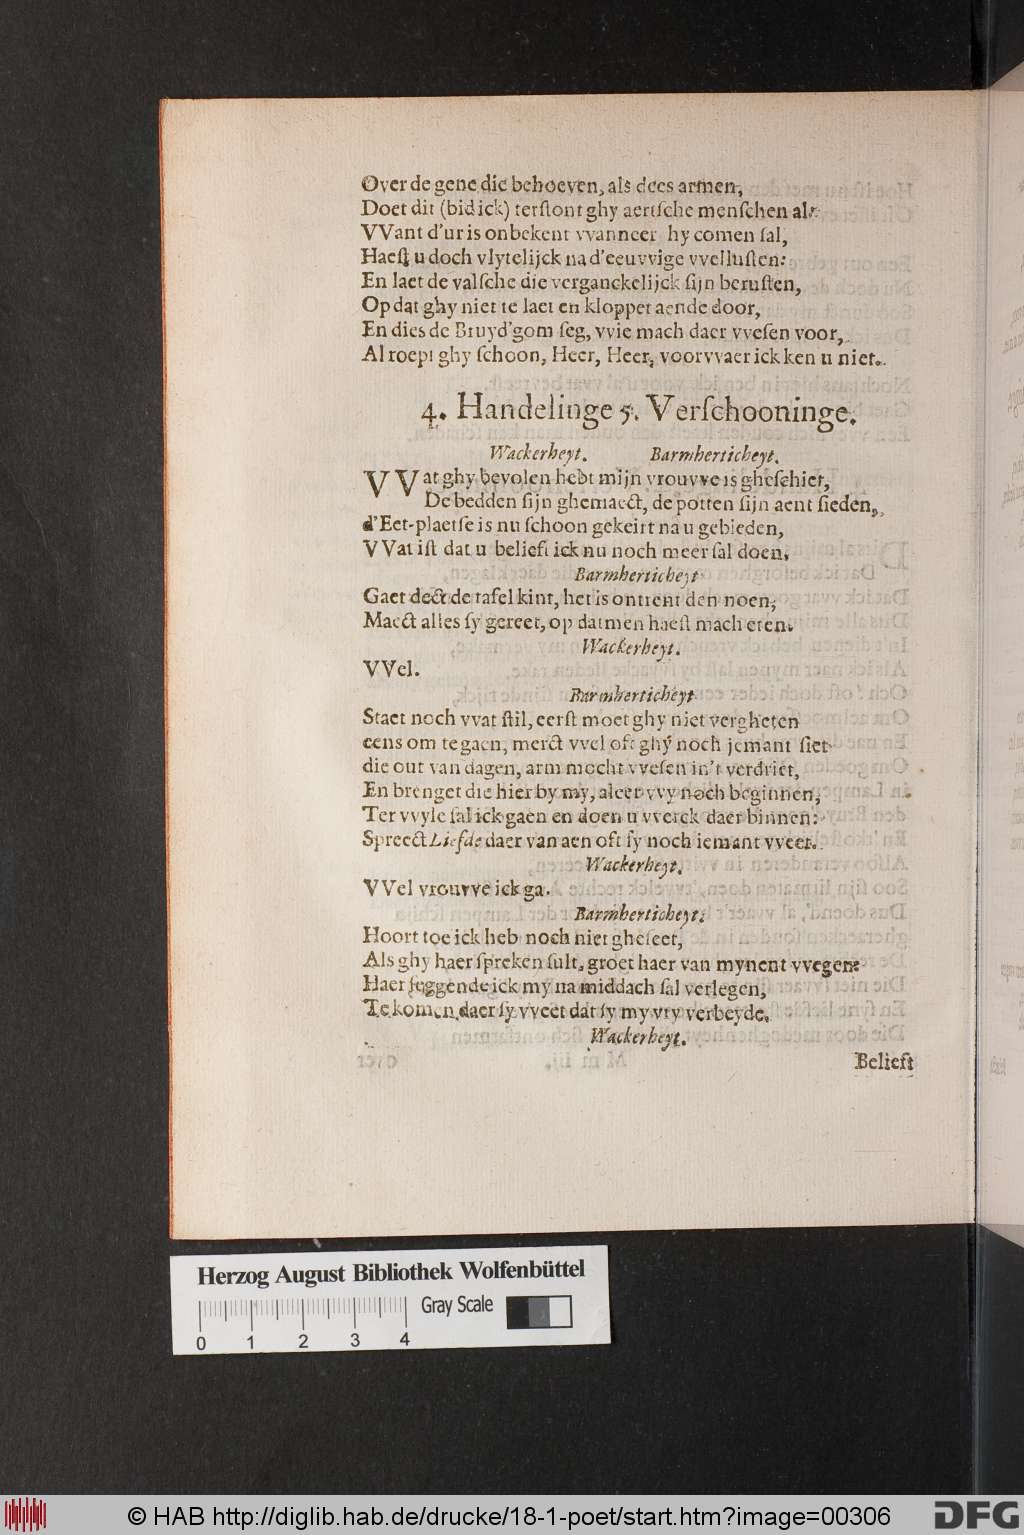 Over de gene die behoeven, als dees armen,
Doet dit (bid ick) terſtont ghy aertſche menſchen al
VVant d'ur is onbekent vvanneer hy comen ſal,
Haeſt u doch vlytelijck na d'eeuvvige vvelluſten:
En laet de valſche die verganckelijck ſijn beruſten,
Op dat ghy niet te laet en kloppet aende door,
En dies de Bruyd'gom ſeg, vvie mach daer vveſen voor,
Al roept ghy ſchoon, Heer, Heer, voorvvaer ick ken u niet.
4. Handelinge 5. Verſchooninge.
Wackerheyt. Barmherticheyt.
VVat ghy bevolen hebt mijn vrouvve is gheſchiet,
De bedden ſijn ghemaect, de potten ſijn aent ſieden,
d'Eet-plaetſe is nu ſchoon gekeirt na u gebieden,
VVat iſt dat u belieft ick nu noch meer ſal doen.
Barmherticheyt
Gaet dect de tafel kint, het is ontrent den noen,
Maect alles ſy gereet, op datmen haeſt mach eten.
Wackerheyt.
VVel.
Barmherticheyt
Staet noch vvat ſtil, eerſt moet ghy niet vergheten
eens om te gaen, merct vvel oft ghy noch jemant ſiet
die out van dagen, arm mocht vveſen in't verdriet,
En brenget die hier by my, aleer vvy noch beginnen,
Ter vvyle ſal ick gaen en doen u vverck daer binnen:
Spreect Liefde daer van aen oft ſy noch iemant vveet.
Wackerheyt.
VVel vrouvve ick ga.
Barmherticheyt.
Hoort toe ick heb noch niet gheſeet,
Als ghy haer ſpreken ſult, groet haer van mynent vvegen:
Haer ſeggende ick my na middach ſal verlegen,
Te komen daer ſy vveet dat ſy my vry verbeyde.
Wackerheyt.
Belieft
Herzog August Bibliothek Wolfenbüttel
Gray Scale
0 1 2 3 4
© HAB http://diglib.hab.de/drucke/18-1-poet/start.htm?image=00306
DFG